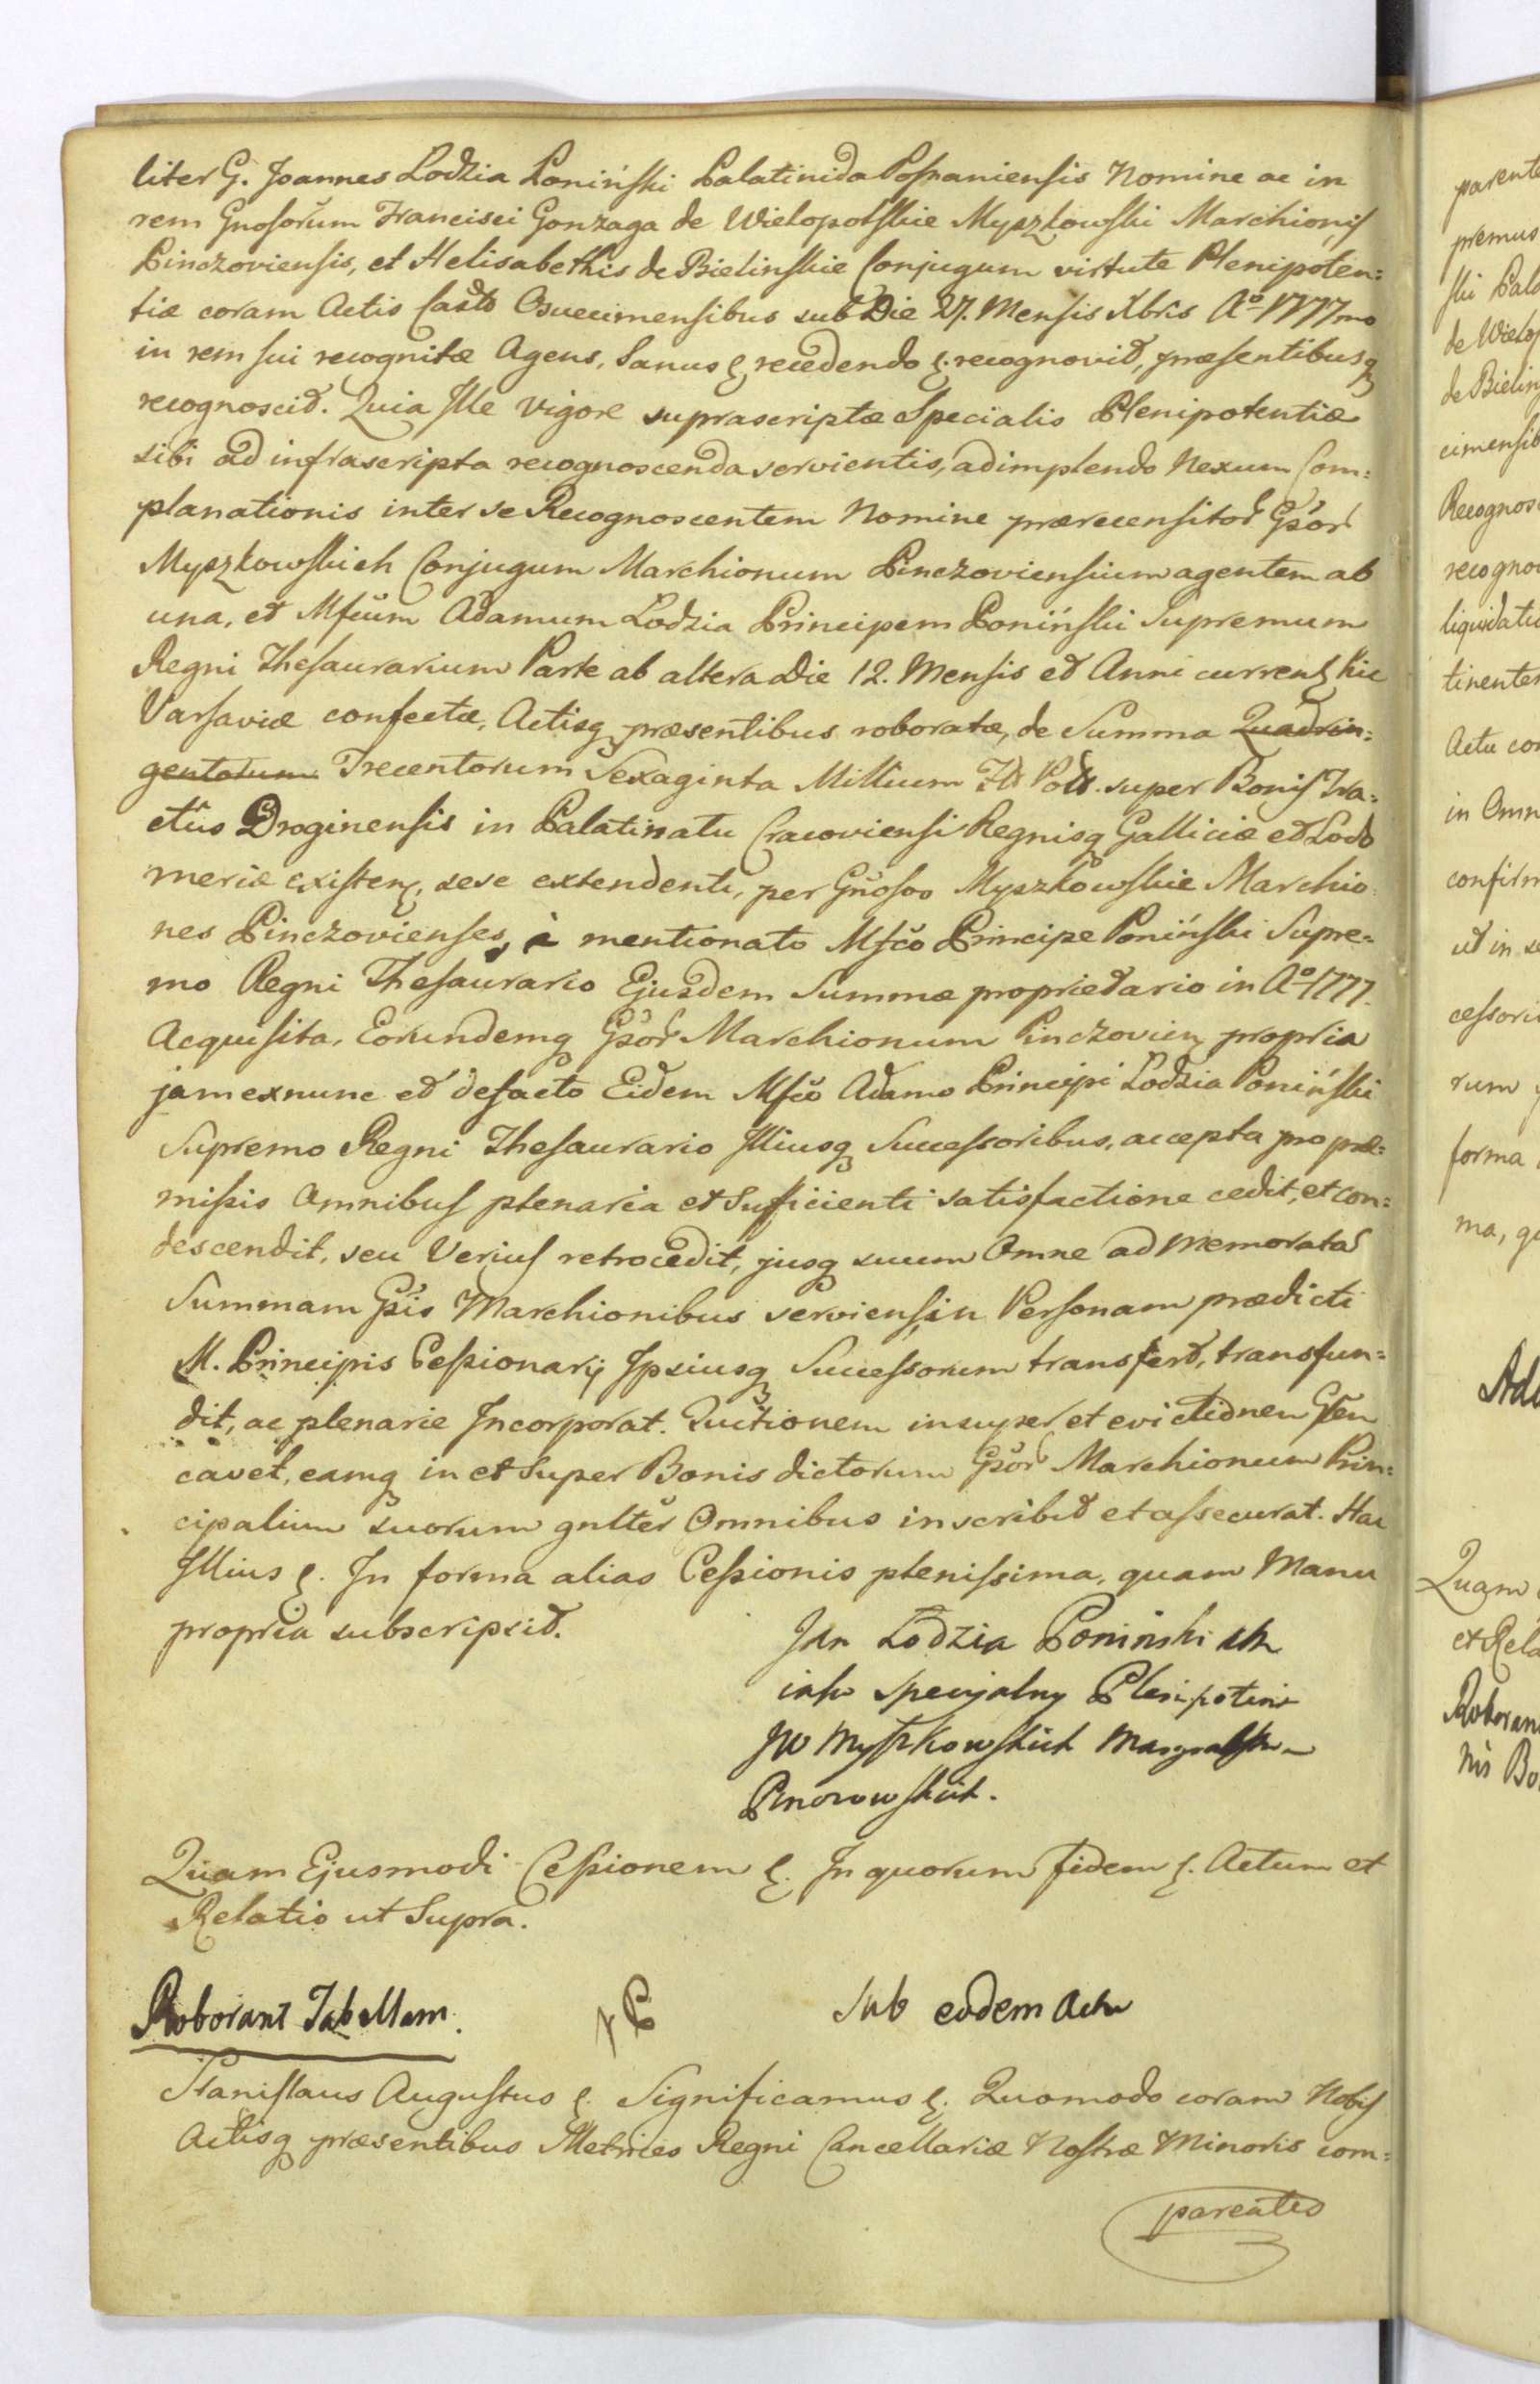 liter G. Joannes Lodzia Poniński Palatinida Posnaniensis Nomine ac in
rem Gnosorum Francisci Gonzaga de Wielopolskie Myszkowski Marchionis
Pinczoviensis, et Helisabethis de Bielinskie Conjugum virtute Plenipoten=
tiæ coram Actis Castr Osvecimensibus sub Die 27. Mensis Xbris Aº 1777mo
in rem sui recognitæ Agens, Sanus &, recedendo &. recognovit, præsentibusq
recognoscit. Quia Ille vigore suprascriptæ Specialis Plenipotentiæ
sibi ad infrascripta recognoscenda servientis, adimplendo Nexum Com=
planationis inter se Recognoscentem Nomine præcensitor Gsor
Myszkowskich Conjugum Marchionum Pinczoviensium agentem ab
una, et Mfcum Adamum Lodzia Principem Poniński Supremum
Regni Thesaurarium Parte ab altera Die 12. Mensis et Anni current hic
Varsaviæ confectæ, Actisq præsentibus roboratæ, de Summa Quadrin=
gentorum Trecentorum Sexaginta Millium Fl Pol. super Bonis Tra=
ctus Droginensis in Palatinatu Cracoviensi Regnisq Galliciæ et Lodo
meriæ existen, sese extendenti, per Gnosos Myszkowskie Marchio=
nes Pinczovienses, à mentionato Mfco Principe Poniński Supre=
mo Regni Thesaurario Ejusdem Summæ proprietario in Aº 1777.
Acquisita, Eorundemq Gsor Marchionum Pinczovien propria
jam exnunc et defacto Eidem Mfco Adamo Principi Lodzia Poniński
Supremo Regni Thesaurario Illiusq Successoribus, accepta pro præ=
missis Omnibus plenaria et Sufficienti satisfactione cedit, et con=
descendit, seu Verius retrocedit, jusq suum Omne ad Memoratam
Summam Gsis Marchionibus serviens, in Personam prædicti
M. Principis Cessionarij Ipsiusq Successorum transfert, transfun=
dit, ac plenarie Incorporat. Quictionem insuper et evictionem Gsen
cavet, eamq in et Super Bonis dictorum Gsor Marchionum Prin=
cipalium suorum gnlter Omnibus inscribit et assecurat. Hac
Illius &. In forma alias Cessionis plenissima, quam Manu
propria subscripsit.
Jan Lodzia Poninski
iako specyalny Plenipotent
JW Myszkowskich
Quam Ejusmodi Cessionem &. In quorum fidem &. Actum et
Relatio ut Supra.
Roborant Tabellam.
Sub eodem Actu
Stanislaus Augustus &. Significamus &. Quomodo coram Nobis
Actisq præsentibus Metrices Regni Cancellariæ Nostræ Minoris com=
pareates
parente
premus
ski Pala
de Wielop
de Bielin
cimensib
Recognos
recogno
liquidatu
tinenter
Actu co
in Omn
confirm
ut in se
cessori
rum
forma
ma, qu
Ada
Quam
et Rela
Roboran
nis Bo